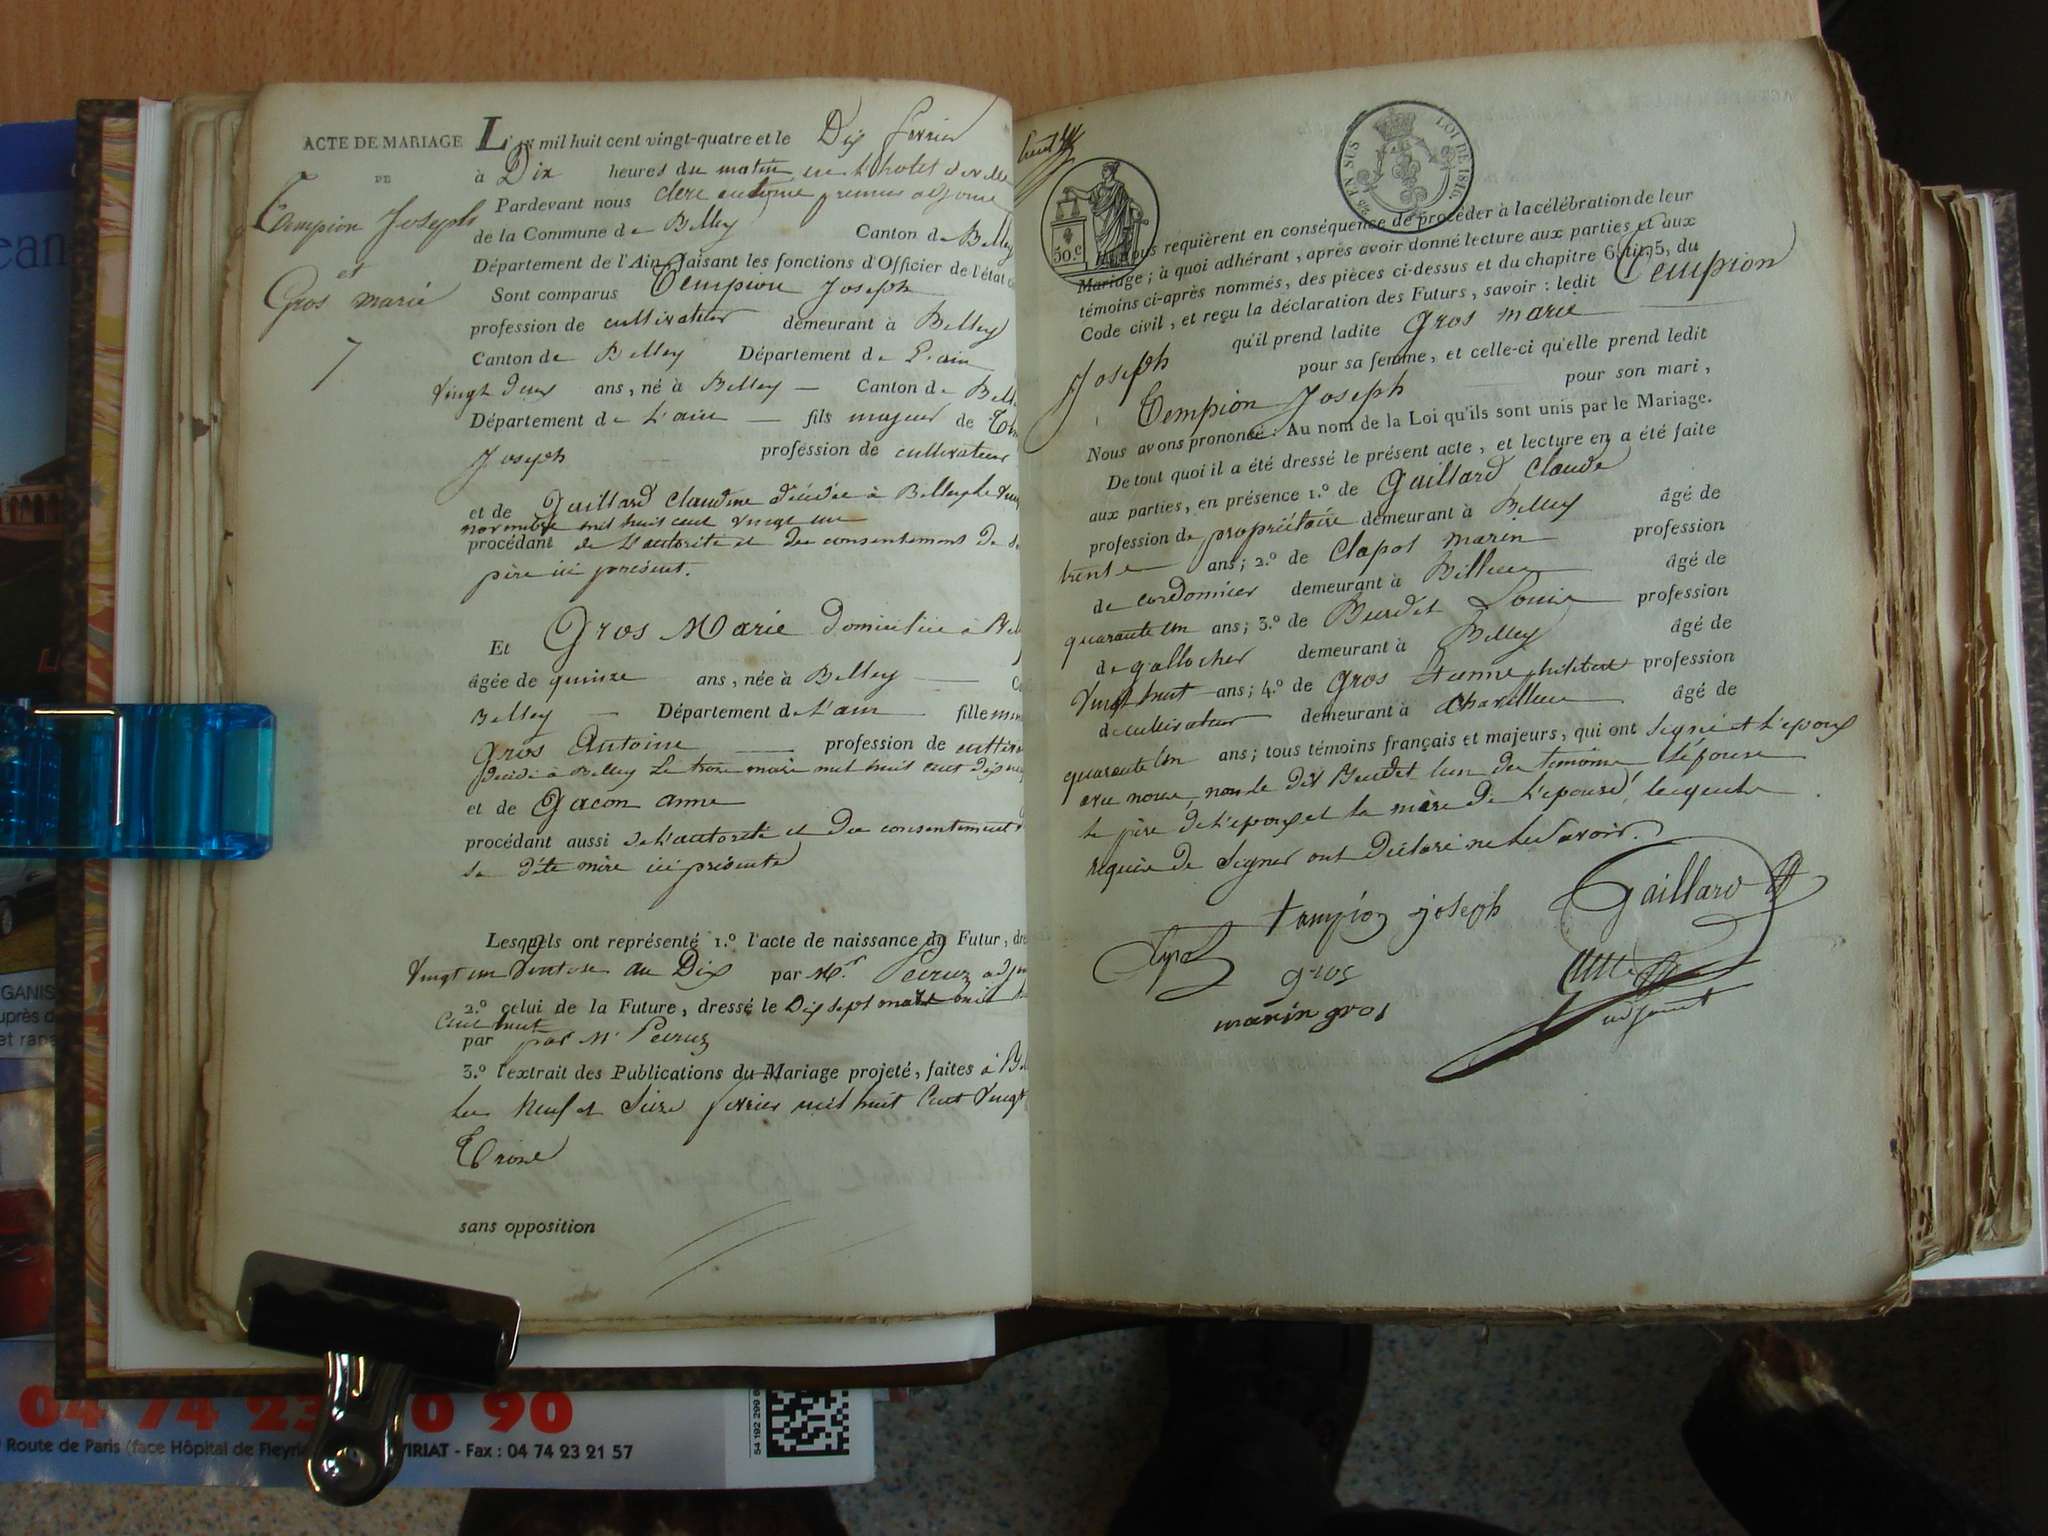 ACTE DE MARIAGE
DE
Tempion Joseph
et
Gros marie
7
L'an mil huit cent vingt-quatre et le Dix fevrier
à Dix heures du matin en L'hotel de ville
Pardevant nous premier adjoint
de la Commune de Belley Canton de Belley
Département de l'Ain faisant les fonctions d'Officier de l'état
Sont comparus Tempion Joseph
profession de cultivateur demeurant à Belley
Canton de Belley Département de L'ain
Vingt deux ans, né à Belley Canton de Bell
Département de L'ain fils majeur de
Joseph profession de cultivateur
et de Gaillard Claudine décédée à Belley le
novembre mil huit cent vingt un
procédant de L'autorité et du consentement de
père ici présent.
Et Gros Marie Domiciliée à Bel
âgée de quinze ans, née à Belley
Belley Département de L'ain fille
Gros Antoine profession de
décédé à Belley Le treize mars mil huit cent dix
et de Gacon anne
procédant aussi de L'autorité et du consentement
sa dite mère ici présente
Lesquels ont représenté 1.º l'acte de naissance du Futur,
Vingt un Ventose an Dix par Mr. Peiruz adj
2.º celui de la Future, dressé le Dix sept mars mil
Cent huit
par par Mr Peiruz
3.º l'extrait des Publications du Mariage projeté, faites à
les Neuf et Seize fevrier mil huit Cent Vingt
sans opposition
50 c.
EN SUS
LOI DE 1816.
nous requièrent en conséquence de procéder à la célébration de leur
Mariage; à quoi adhérant, après avoir donné lecture aux parties et aux
témoins ci-après nommés, des pièces ci-dessus et du chapitre 6, tit. 5, du
Code civil, et reçu la déclaration des Futurs, savoir: ledit Tempion
Joseph qu'il prend ladite Gros marie
pour sa femme, et celle-ci qu'elle prend ledit
Tempion Joseph pour son mari,
Nous avons prononcé: Au nom de la Loi qu'ils sont unis par le Mariage.
De tout quoi il a été dressé le présent acte, et lecture en a été faite
aux parties, en présence 1.º de Gaillard Claude
profession de propriétaire demeurant à Belley âgé de
trente ans; 2.º de Clapot marin profession
de cordonnier demeurant à âgé de
quarante un ans; 3.º de Burdet Louis profession
de gallocher demeurant à Belley âgé de
Vingt huit ans; 4.º de Gros Etienne philibert profession
de cultivateur demeurant à âgé de
quarante un ans; tous témoins français et majeurs, qui ont signé et L'epoux
avec nous, non le dit Burdet l'un des temoins L'épouse
le père de L'epoux et la mère de L'epouse, lesquels
requis de signer ont déclaré ne le savoir.
tampion joseph Gaillard
gros
marin gros
adjoint
04 74 23 0 90
Route de Paris (face Hôpital de Fleyria YRIAT - Fax : 04 74 23 21 57